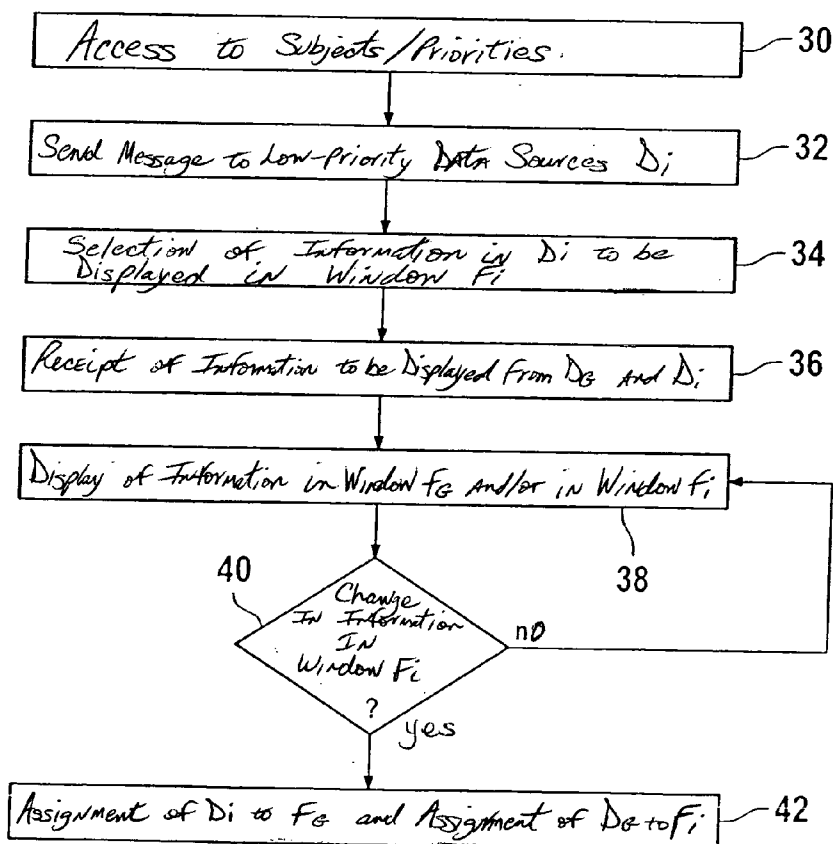 Access to Subjects/Priorities.
30
Send Message to Low-Priority DATA Sources Di
32
Selection of Information in Di to be
Displayed in Window Fi
34
Receipt of Information to be Displayed From DG And Di
36
Display of Information in Window FG And/or in Window Fi
38
40
Change
In Information
In
Window Fi
?
no
yes
Assignment of Di to FG and Assignment of DG to Fi
42